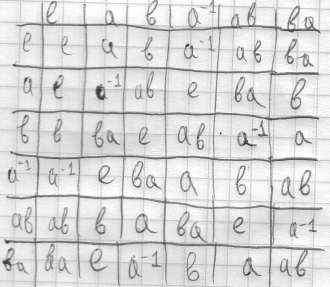 e a b a⁻¹ ab ba
e e a b a⁻¹ ab ba
a e a⁻¹ ab e ba b
b b ba e ab a⁻¹ a
a⁻¹ a⁻¹ e ba a b ab
ab ab b a ba e a⁻¹
ba ba e a⁻¹ b a ab